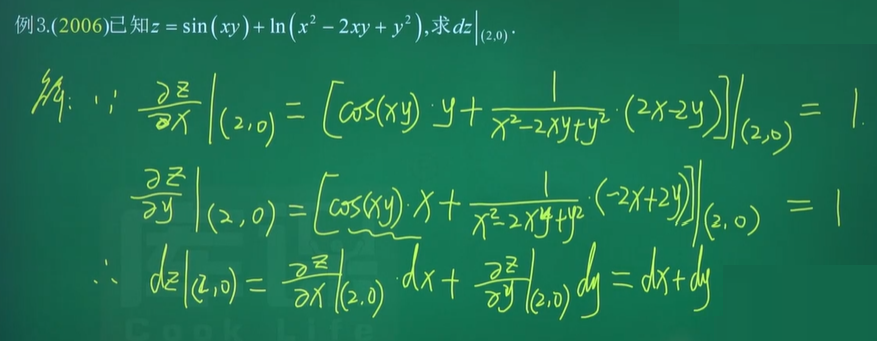 例3.(2006)已知z = sin(xy) + ln(x² − 2xy + y²),求dz|(2,0).
解: ∵ ∂z/∂x|(2,0) = [cos(xy)·y + 1/(x²−2xy+y²)·(2x−2y)]|(2,0) = 1.
∂z/∂y|(2,0) = [cos(xy)·x + 1/(x²−2xy+y²)·(−2x+2y)]|(2,0) = 1
∴ dz|(2,0) = ∂z/∂x|(2,0)·dx + ∂z/∂y|(2,0) dy = dx+dy